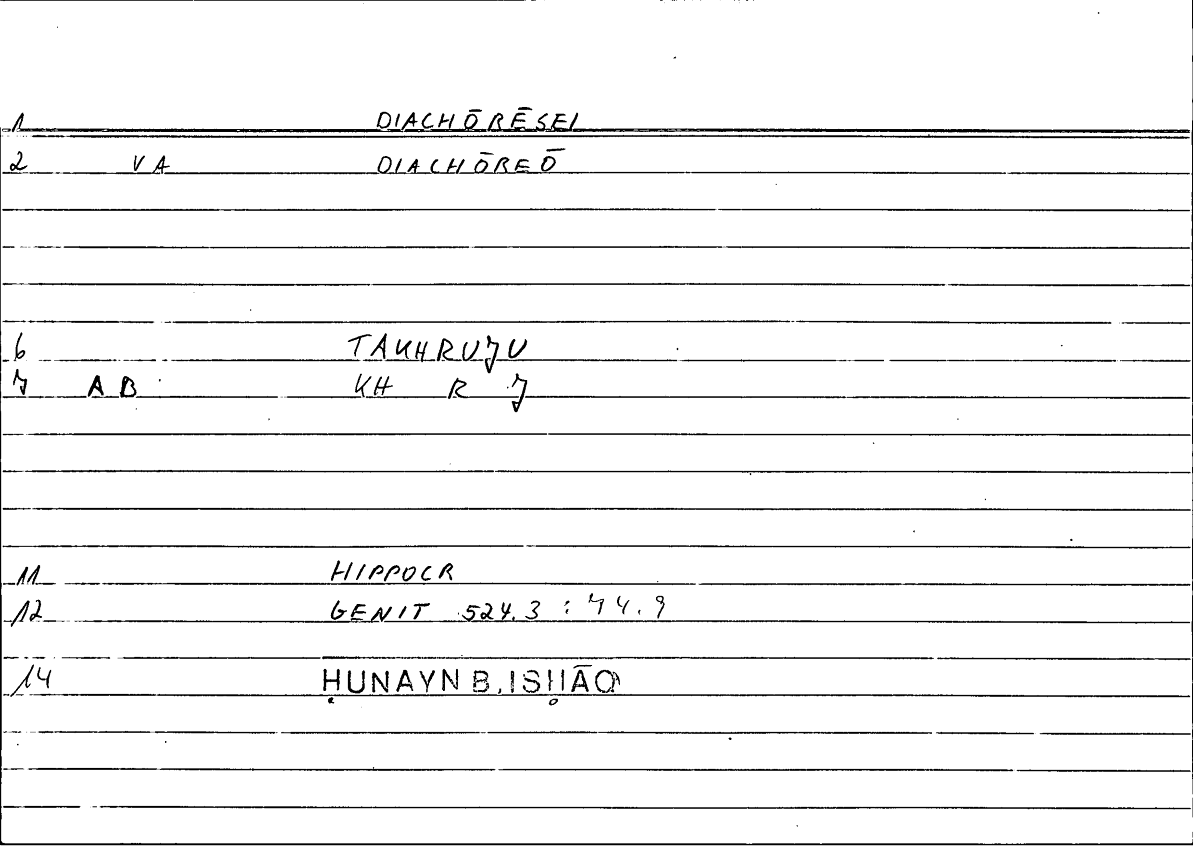 1 DIACHŌRĒSEI
2 VA DIACHŌREŌ
6 TAKHRUJU
7 AB KH R J
11 HIPPOCR
12 GENIT 524.3 : 74.9
14 ḤUNAYN B. ISḤĀQ